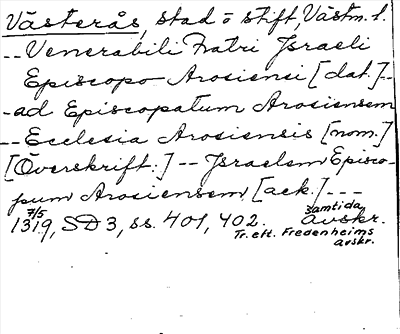 Västerås, stad o stift, Västm. l.
-- Venerabili Fratri Israeli
Episcopo Arosiensi [dat.]--
- ad Episcopatum Arosiensem
-- Ecclesia Arosiensis [nom.]
[Överskrift:] -- Israelem Episco-
pum Arosiensem [ack.] ---
7/5 1319, SD 3, ss. 401, 402. Samtida avskr.
Tr. eft. Fredenheims
avskr.